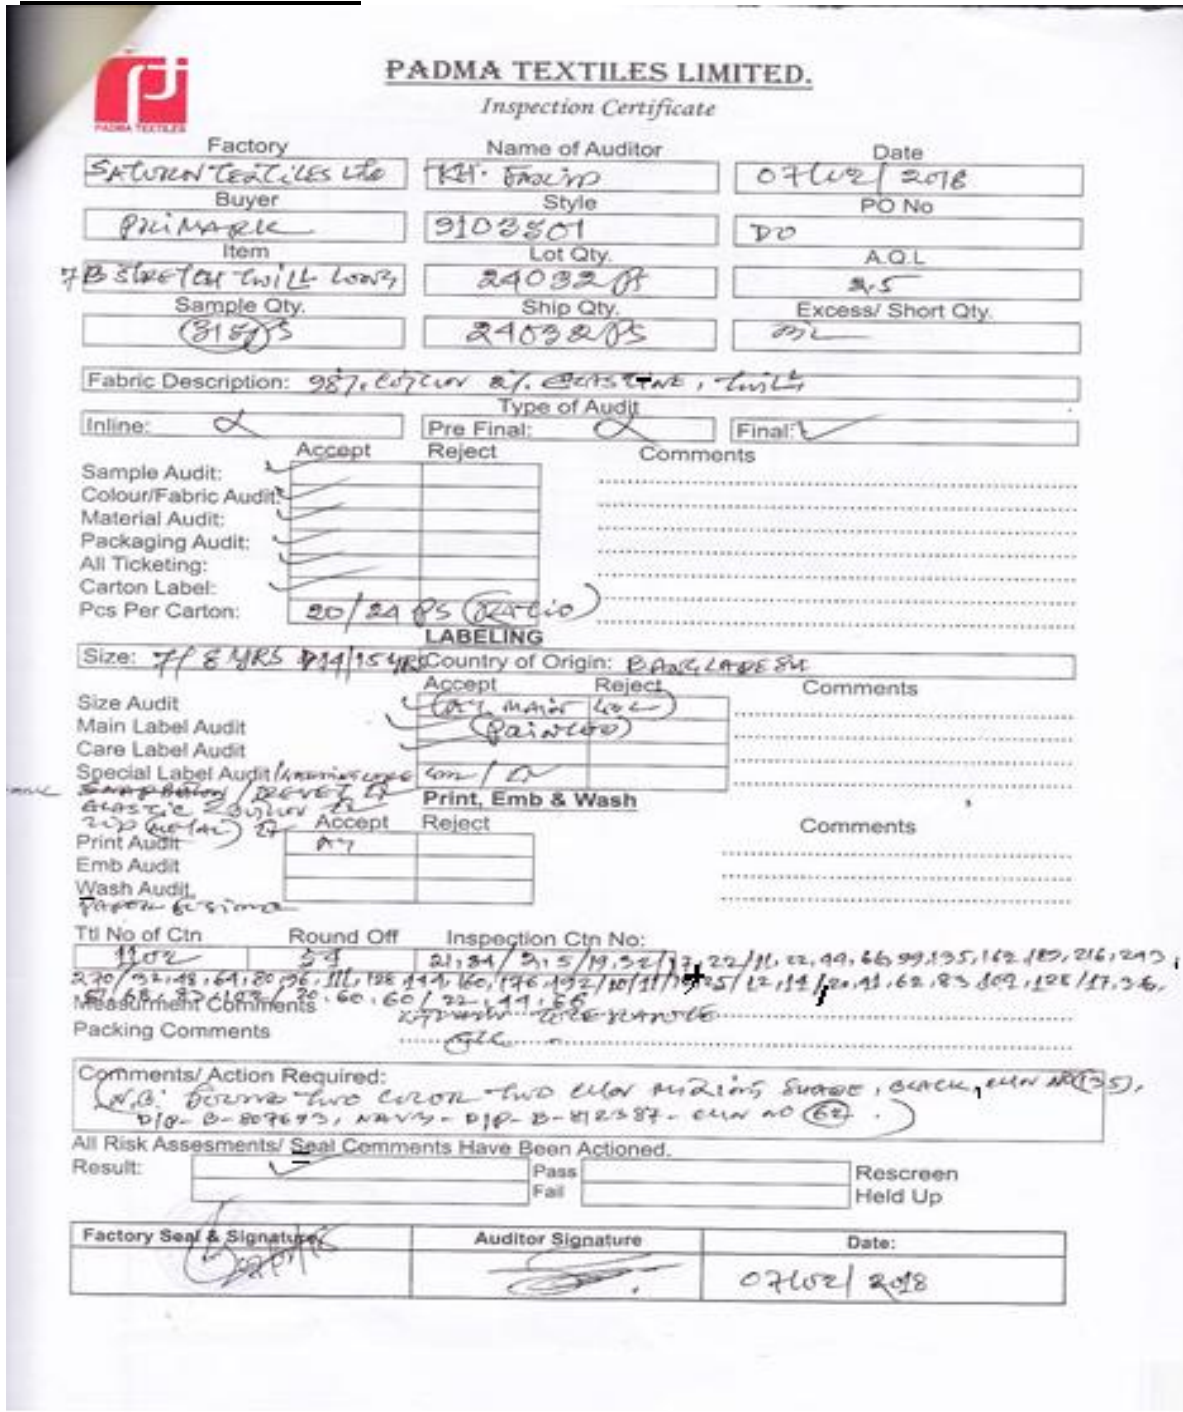 PADMA TEXTILES LIMITED.
Inspection Certificate
PADMA TEXTILES
Factory Name of Auditor Date
SATURN TEXTILES LTD KH. 07/02/2018
Buyer Style PO No
PRIMARK 9103501 DO
Item Lot Qty. A.Q.L
7B STRETCH TWILL LONG 24032 2.5
Sample Qty. Ship Qty. Excess/ Short Qty.
315 PS 24032 PS
Fabric Description: 98% COTTON 2% ELASTINE, TWILL
Type of Audit
Inline: Pre Final: Final:
Accept Reject Comments
Sample Audit:
Colour/Fabric Audit:
Material Audit:
Packaging Audit:
All Ticketing:
Carton Label:
Pcs Per Carton: 20/24 PS (Ratio)
LABELING
Size: 7/8 YRS 14/15 YRS Country of Origin: BANGLADESH
Accept Reject Comments
Size Audit
Main Label Audit
Care Label Audit
Special Label Audit/
ELASTIC
ZIP (METAL)
Print, Emb & Wash
Accept Reject Comments
Print Audit
Emb Audit
Wash Audit
Ttl No of Ctn Round Off Inspection Ctn No:
1102 54 21,34/3,5/19,32/17,22/11,22,44,66,99,135,162,189,216,243,
270/32,48,64,80,96,111,128,144,160,176,192/10/11/ 25/12,14/20,41,62,83,102,128/17,36,
20,60,60/22,44,66
Measurment Comments WITHIN TOLERANCE
Packing Comments
Comments/ Action Required:
(N.B: FOUND TWO COLOR TWO CTN MIXING SHADE, BLACK, CTN NO (135),
D/P- B-807693, NAVY- D/P- B-812387- CTN NO (62).)
All Risk Assesments/ Seal Comments Have Been Actioned.
Result: Pass Rescreen
Fail Held Up
Factory Seal & Signature Auditor Signature Date:
07/02/2018